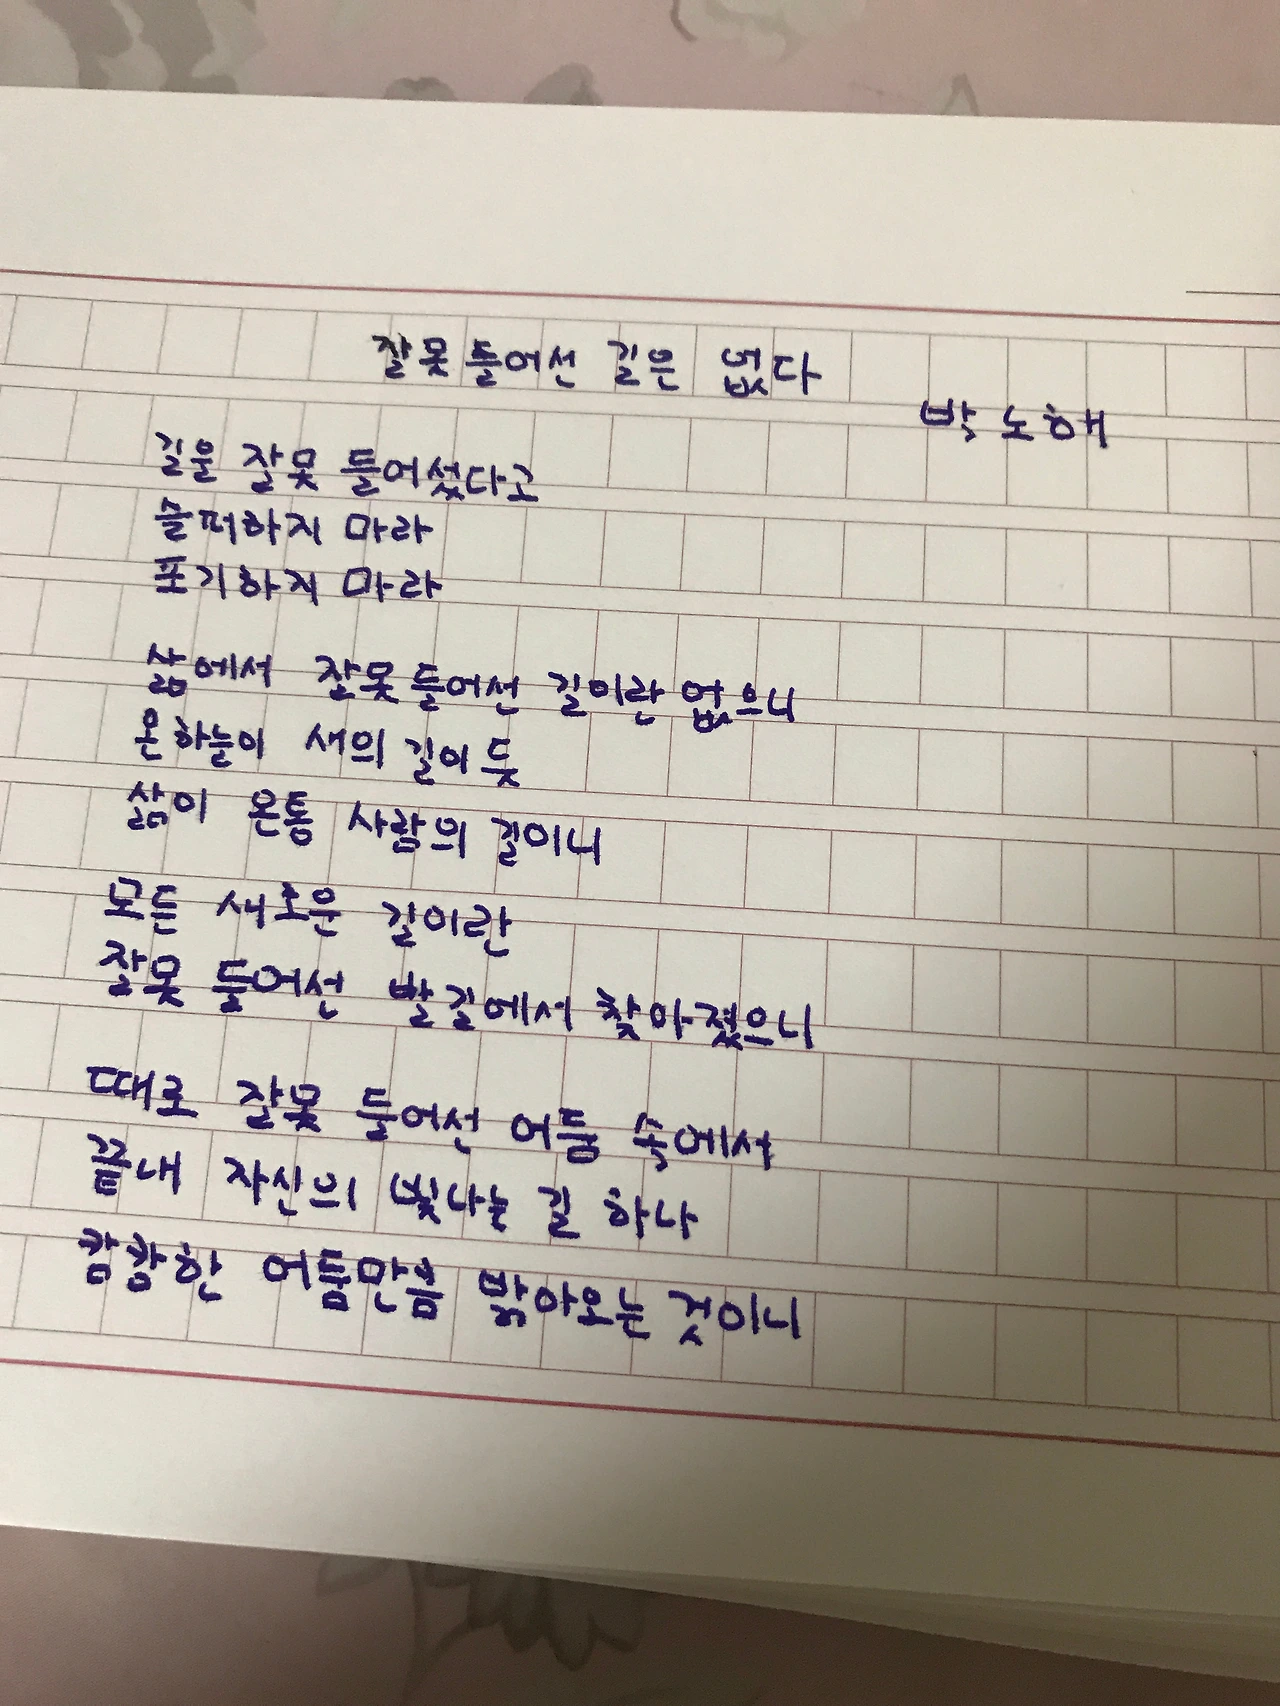 잘못 들어선 길은 없다
박노해
길을 잘못 들어섰다고
슬퍼하지 마라
포기하지 마라
삶에서 잘못 들어선 길이란 없으니
온하늘이 새의 길이듯
삶이 온통 사람의 길이니
모든 새로운 길이란
잘못 들어선 발길에서 찾아졌으니
때로 잘못 들어선 어둠 속에서
끝내 자신의 빛나는 길 하나
캄캄한 어둠만큼 밝아오는 것이니